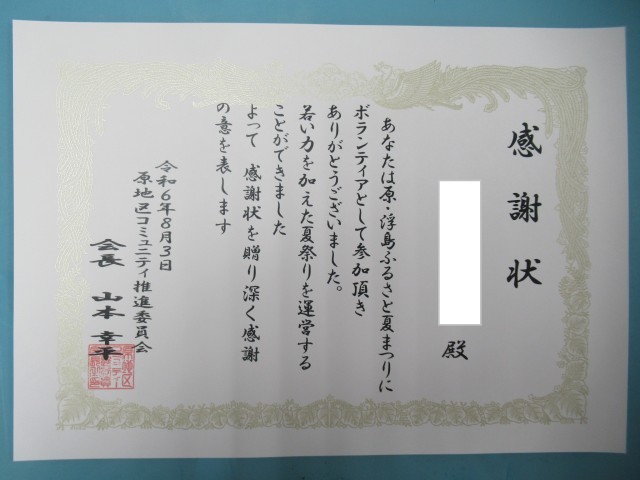 感謝状
殿
あなたは原・浮島ふるさと夏まつりに
ボランティアとして参加頂き
ありがとうございました。
若い力を加えた夏祭りを運営する
ことができました
よって 感謝状を贈り深く感謝
の意を表します
令和6年8月3日
原地区コミュニティ推進委員会
会長 山本幸平